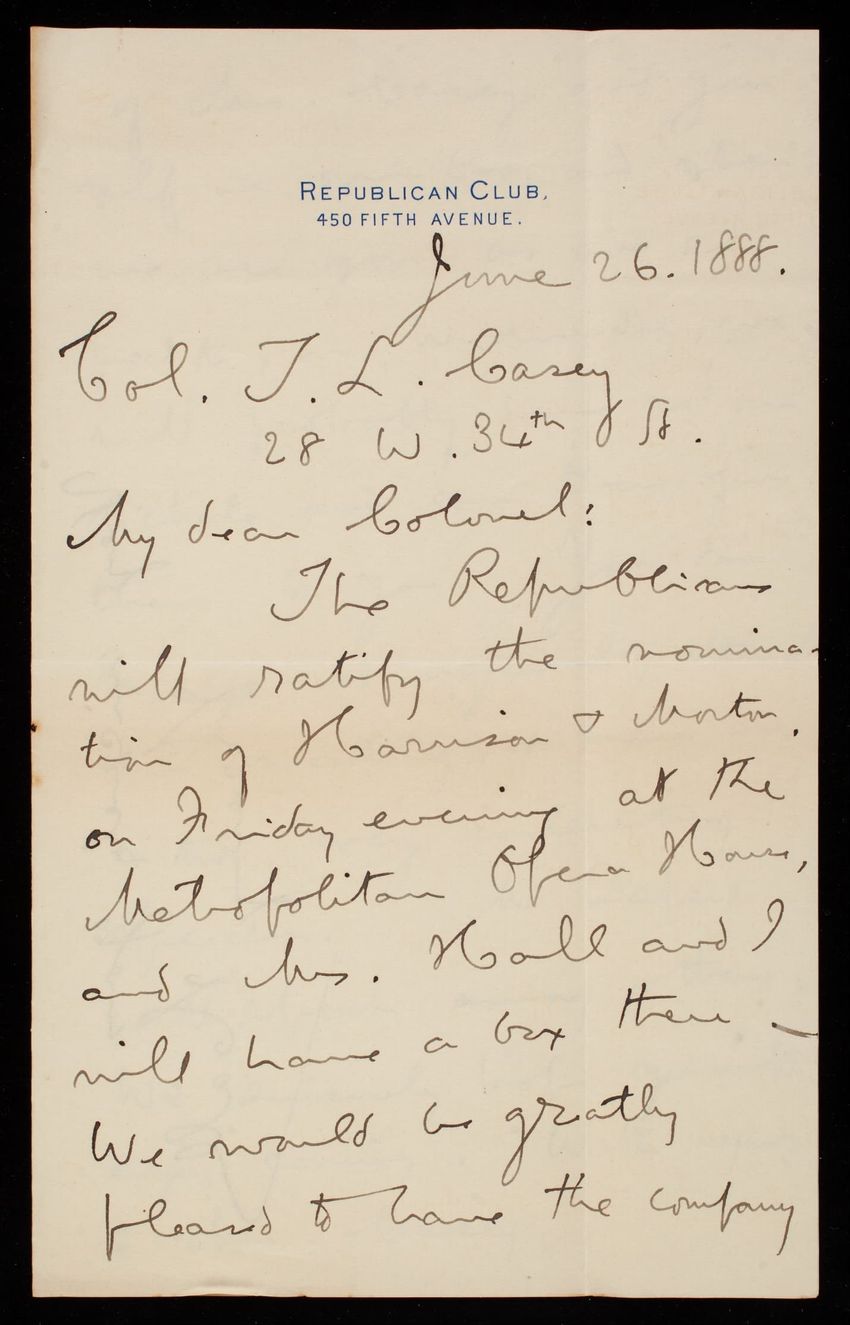 REPUBLICAN CLUB,
450 FIFTH AVENUE.
June 26. 1888.
Col. T. L. Casey
28 W. 34th St.
My dear Colonel:
The Republicans
will ratify the nomina-
tion of Harrison & Morton,
on Friday evening at the
Metropolitan Opera House,
and Mrs. Hall and I
will have a box there –
We would be greatly
pleased to have the company